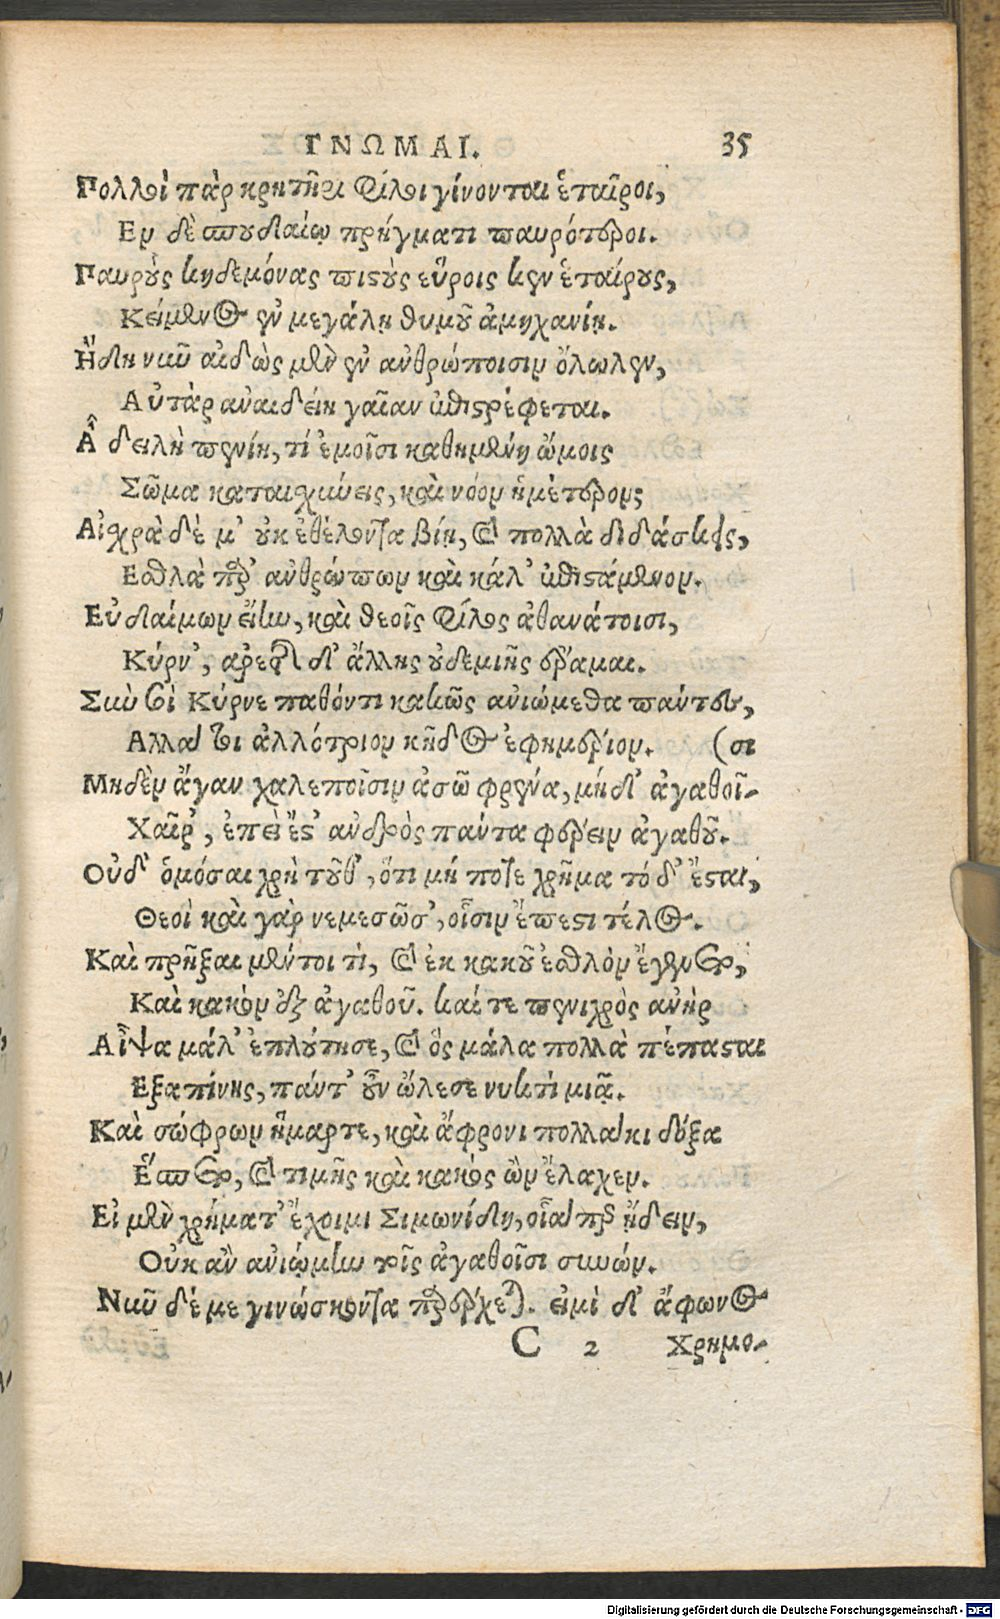 ΓΝΩΜΑΙ. 35
Πολλοὶ πὰρ κρητῆρι φίλοι γίνονται ἑταῖροι,
Εν δὲ σπουδαίῳ πρήγματι παυρότεροι.
Παύρους κηδεμόνας πιστοὺς εὕροις κεν ἑταίρους,
Κείμενος ἐν μεγάλῃ θυμοῦ ἀμηχανίῃ.
Ἤδη νῦν αἰδὼς μὲν ἐν ἀνθρώποισιν ὄλωλεν,
Αὐτὰρ ἀναιδείη γαῖαν ἐπιστρέφεται.
Ἆ δειλὴ πενίη, τί ἐμοῖσι καθημένη ὤμοις
Σῶμα καταισχύνεις, καὶ νόον ἡμέτερον;
Αἰσχρὰ δέ μ' οὐκ ἐθέλοντα βίῃ, καὶ πολλὰ διδάσκεις,
Εσθλὰ παρ' ἀνθρώπων καὶ κάλ' ἐπιστάμενον.
Εὐδαίμων εἴην, καὶ θεοῖς φίλος ἀθανάτοισι,
Κύρν', ἀρετῆς δ' ἄλλης οὐδεμιῆς ἔραμαι.
Σὺν σοὶ Κύρνε παθόντι κακῶς ἀνιώμεθα πάντες,
Αλλά τοι ἀλλότριον κῆδος ἐφημέριον. (σι
Μηδὲν ἄγαν χαλεποῖσιν ἀσῶ φρένα, μήδ' ἀγαθοῖ-
Χαῖρ', ἐπεὶ ἔστ' ἀνδρὸς πάντα φέρειν ἀγαθοῦ.
Οὐδ' ὁμόσαι χρὴ τοῦθ', ὅτι μή ποτε χρῆμα τό δ' ἔσται,
Θεοὶ καὶ γὰρ νεμεσῶσ', οἷσιν ἔπεστι τέλος.
Καὶ πρῆξαι μέντοι τὶ, καὶ ἐκ κακοῦ ἐσθλὸν ἔγεντο,
Καὶ κακὸν ἐξ ἀγαθοῦ. καί τε πενιχρὸς ἀνὴρ
Αἶψα μάλ' ἐπλούτησε, καὶ ὃς μάλα πολλὰ πέπασται
Εξαπίνης, πάντ' οὖν ὤλεσε νυκτὶ μιᾷ.
Καὶ σώφρων ἥμαρτε, καὶ ἄφρονι πολλάκι δόξα
Ἕσπετο, καὶ τιμῆς καὶ κακὸς ὢν ἔλαχεν.
Εἰ μὲν χρήματ' ἔχοιμι Σιμωνίδη, οἷά περ ᾔδειν,
Οὐκ ἂν ἀνιῴμην τοῖς ἀγαθοῖσι συνών.
Νῦν δέ με γινώσκοντα παρέρχεται. εἰμὶ δ' ἄφωνος
C 2 Χρημο-
Digitalisierung gefördert durch die Deutsche Forschungsgemeinschaft - DFG